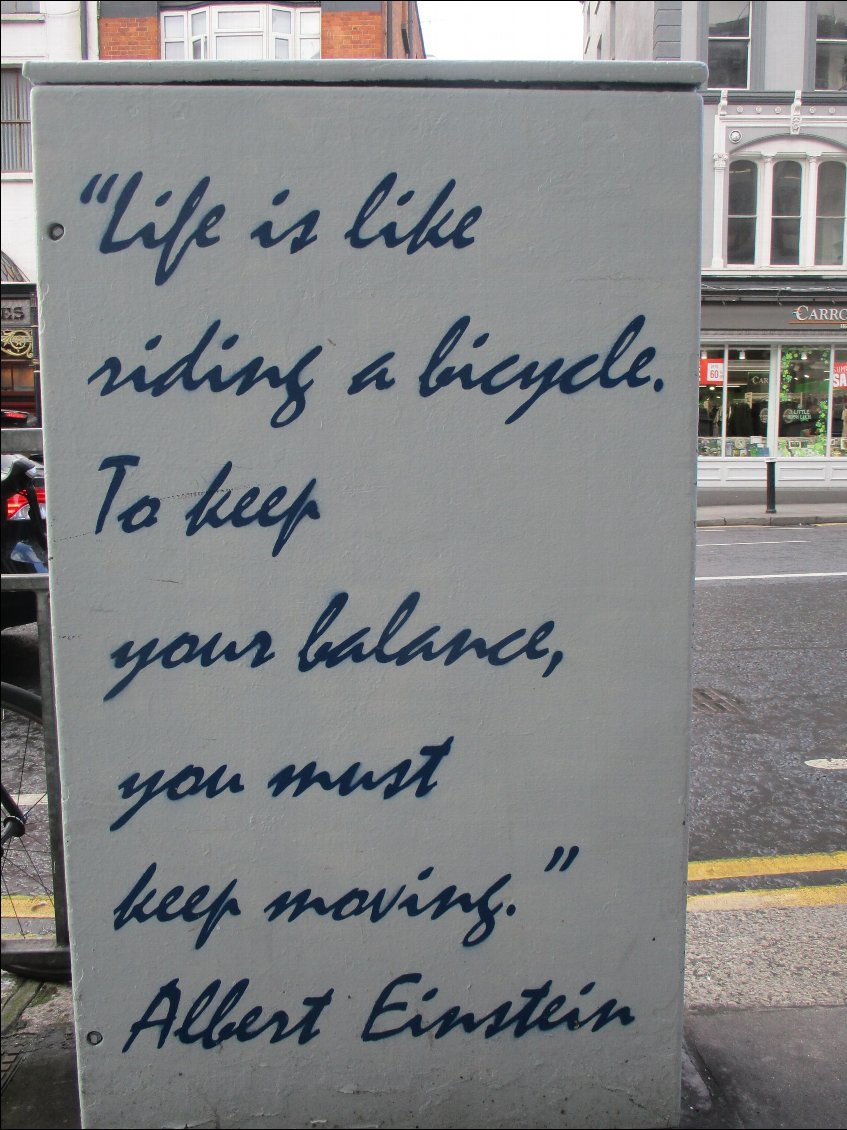 “Life is like
riding a bicycle.
To keep
your balance,
you must
keep moving.”
Albert Einstein
ES
CARRO
60
CAR
LITTLE
SA